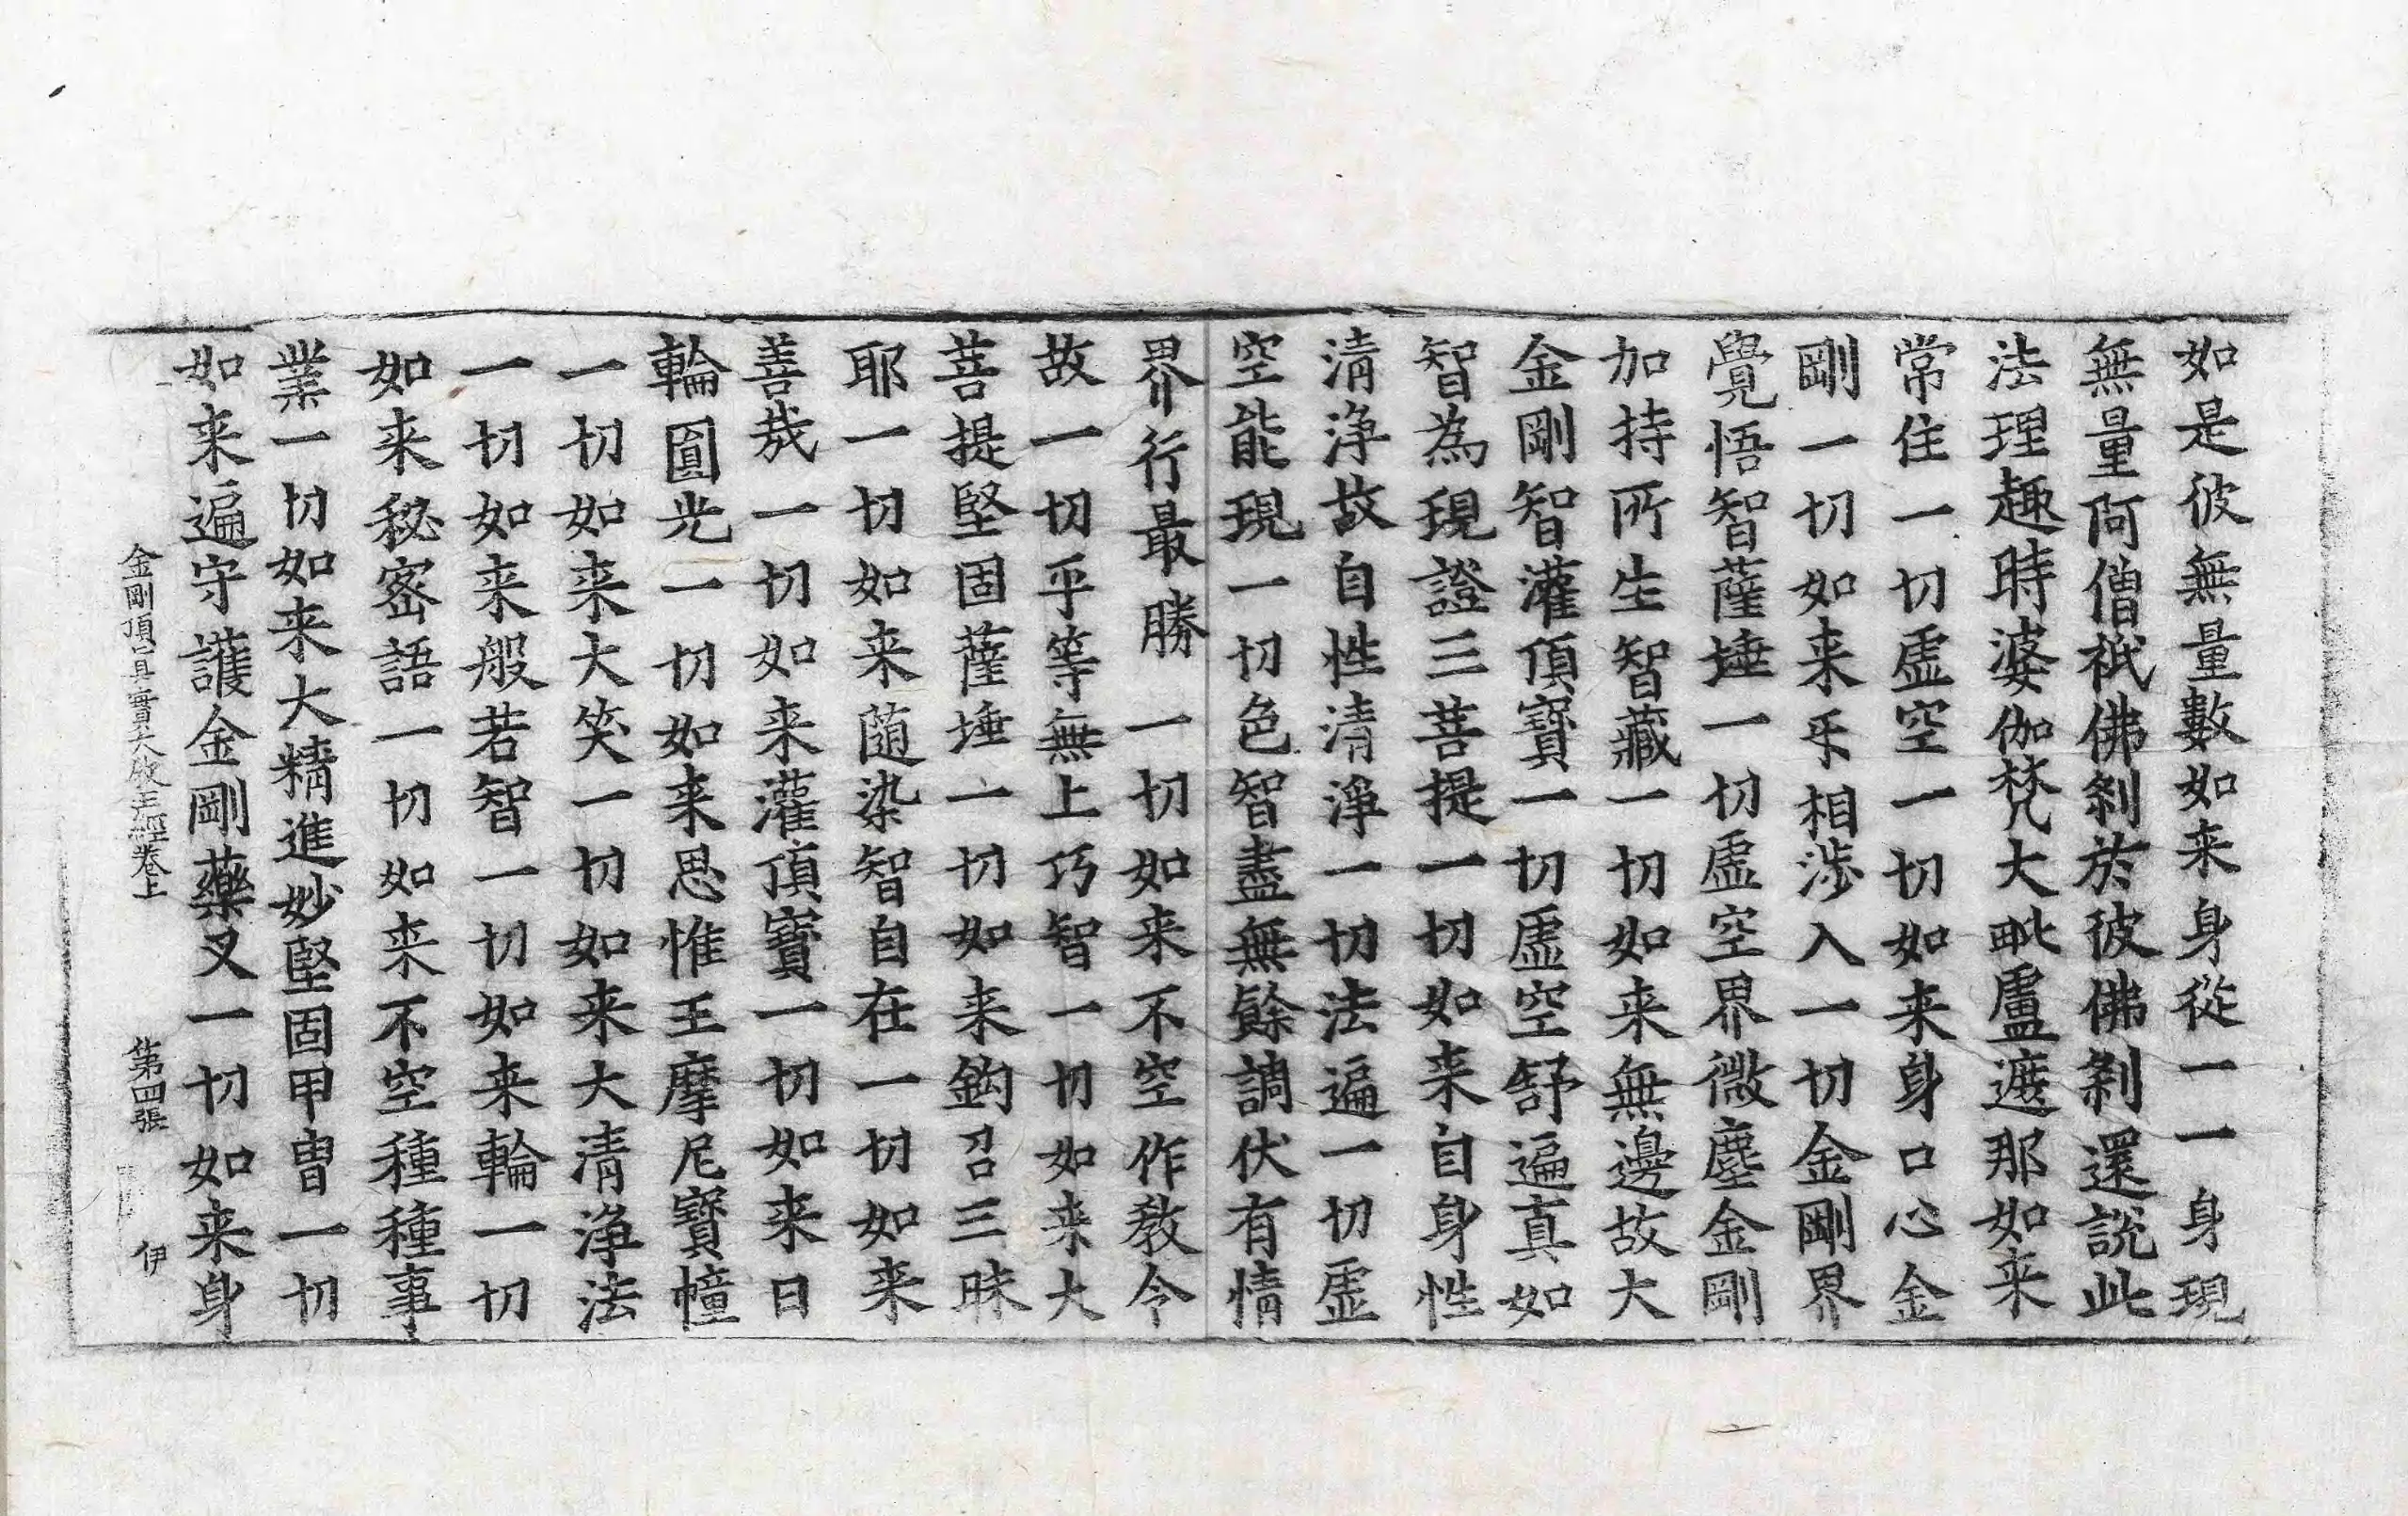 如是彼無量數如来身從一一身現
無量阿僧祇佛刹於彼佛刹還說此
法理趣時婆伽梵大毗盧遮那如来
常住一切虛空一切如来身口心金
剛一切如来乎相涉入一切金剛界
覺悟智薩埵一切虛空界微塵金剛
加持所生智藏一切如来無邊故大
金剛智灌頂寶一切虛空舒遍真如
智為現證三菩提一切如来自身性
清淨故自性清淨一切法遍一切虛
空能現一切色智盡無餘調伏有情
界行最勝一切如来不空作教令
故一切平等無上巧智一切如来大
菩提堅固薩埵一切如来鈎召三昧
耶一切如来隨染智自在一切如来
善哉一切如来灌頂寶一切如来日
輪圓光一切如来思惟王摩尼寶幢
一切如来大笑一切如来大清淨法
一切如来般若智一切如来輪一切
如来秘密語一切如来不空種種事
業一切如来大精進妙堅固甲胄一切
如来遍守護金剛藥叉一切如来身
金剛頂真實大教王經卷上 第四張 伊